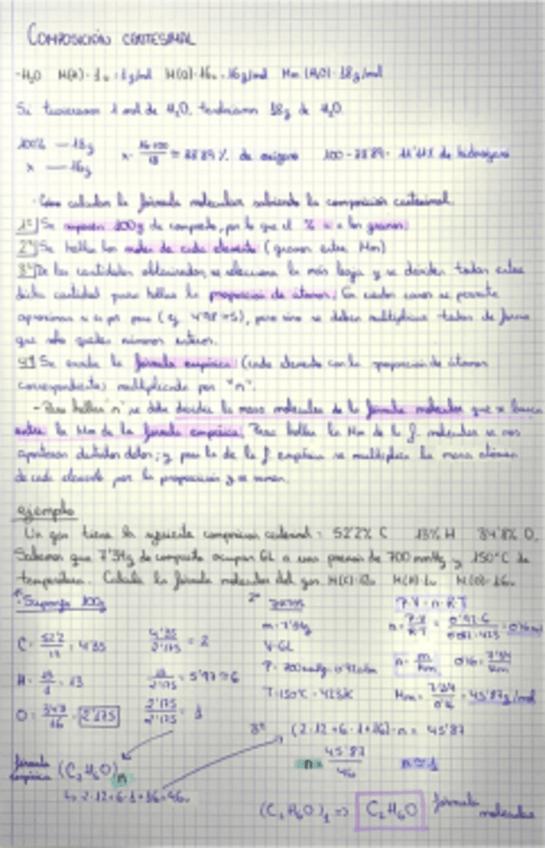 COMPOSICIÓN CENTESIMAL
-H₂O M(H)=1u=1g/mol M(O)=16u=16g/mol Mm(H₂O)=18g/mol
Si tuviéramos 1 mol de H₂O, tendríamos 18g de H₂O.
100% — 18g
x — 16g
x = 16·100/18 = 88'89% de oxígeno 100-88'89 = 11'11% de hidrógeno
Cómo calcular la fórmula molecular sabiendo la composición centesimal.
1º] Se suponen 100g de compuesto, por lo que el % = los gramos.
2º] Se hallan los moles de cada elemento (gramos entre Mm)
3º] De las cantidades obtenidas, se selecciona la más baja y se dividen todas entre
dicha cantidad para hallar la proporción de átomos. En ciertos casos se permite
aproximar (ej. 4'98≈5), pero sino se deben multiplicar todas de forma
que solo queden números enteros.
4º] Se escribe la fórmula empírica (cada elemento con la proporción de átomos
correspondiente) multiplicado por "n".
- Para hallar "n" se debe dividir la masa molecular de la fórmula molecular que se busca
entre la Mm de la fórmula empírica. Para hallar la Mm de la f. molecular se nos
aportarán distintos datos; y para la de la f. empírica se multiplica la masa atómica
de cada elemento por la proporción y se suman.
ejemplo
Un gas tiene la siguiente composición centesimal: 52'2% C 13% H 34'8% O.
Sabemos que 7'34g de compuesto ocupan 6L a una presión de 700 mmHg y 150°C de
temperatura. Calcula la fórmula molecular del gas. M(C)=12u M(H)=1u M(O)=16u
1º Suponga 100g
C = 52'2/12 = 4'35
4'35/2'175 = 2
H = 13/1 = 13
13/2'175 = 5'97≈6
O = 34'8/16 = 2'175
2'175/2'175 = 1
2º DATOS
m = 7'34g
V = 6L
P = 700mmHg = 0'92atm
T = 150°C = 423K
P·V = n·R·T
n = P·V/R·T = 0'92·6/0'082·423 = 0'16mol
n = m/Mm 0'16 = 7'34/Mm
Mm = 7'34/0'16 = 45'87g/mol
3º (2·12+6·1+16)·n = 45'87
n = 45'87/46 n≈1
fórmula empírica (C₂H₆O)n
↳ 2·12+6·1+16=46u
(C₂H₆O)₁ => C₂H₆O fórmula molecular